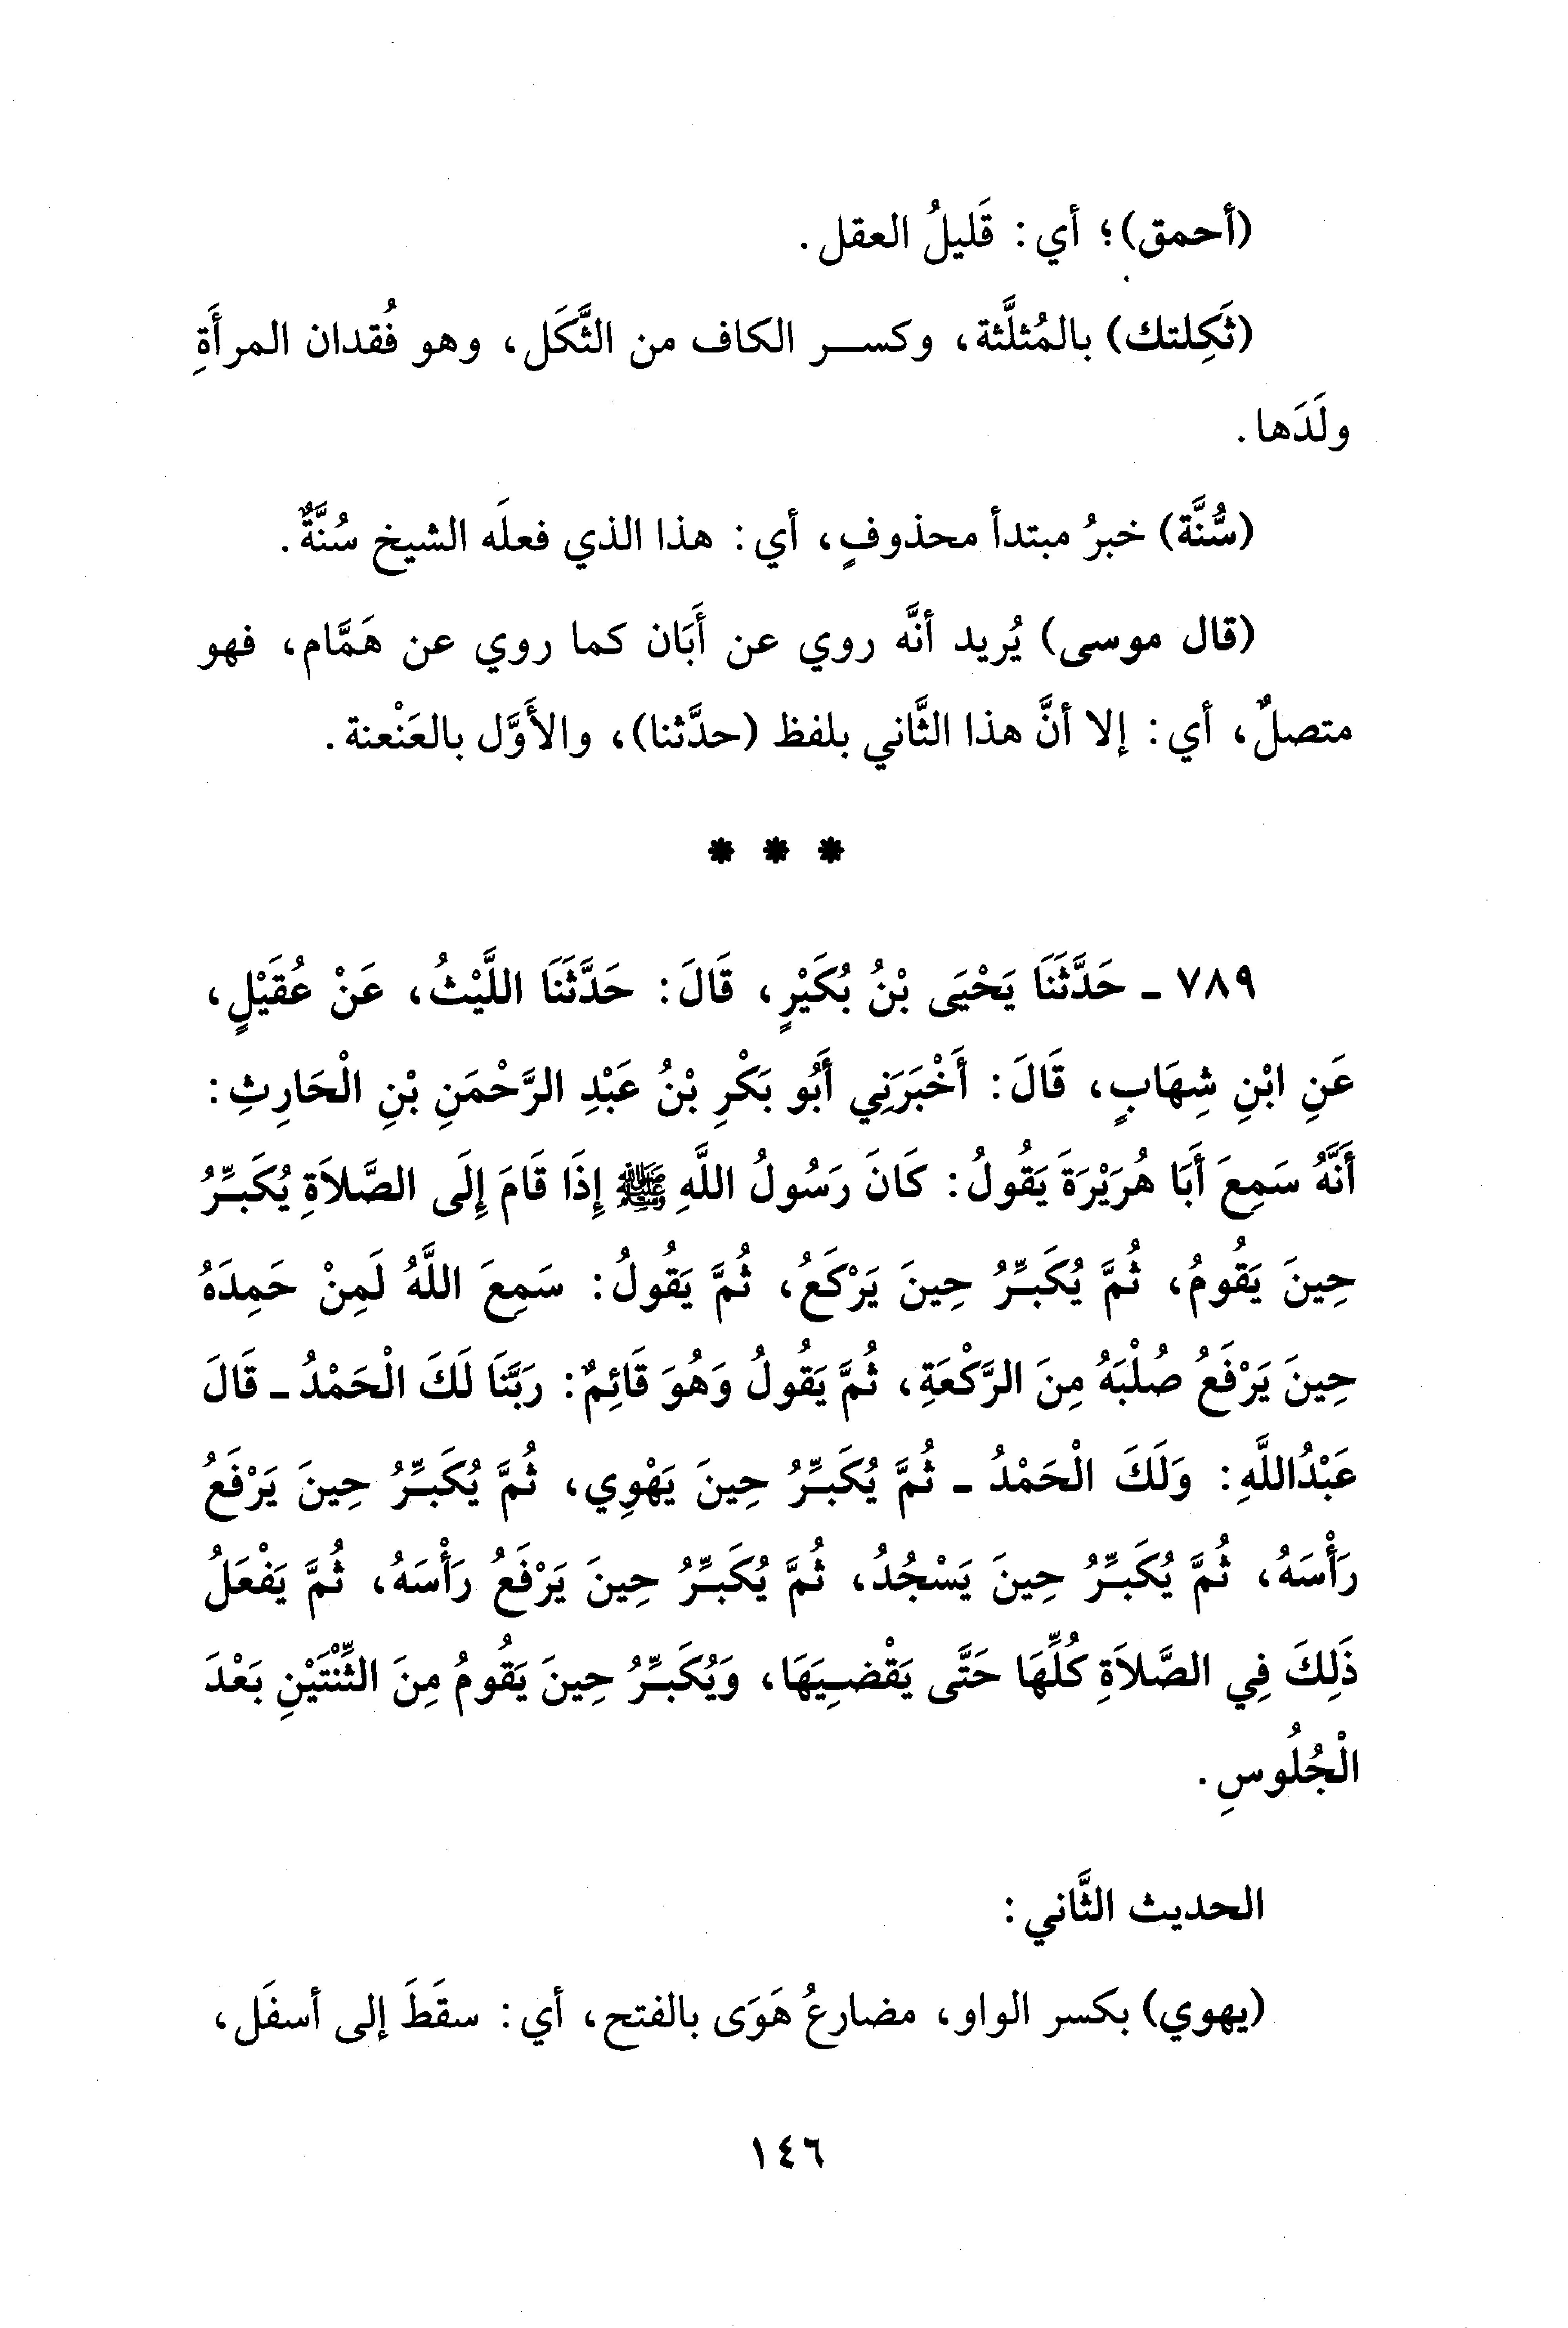 (أحمق)؛ أي: قَليلُ العقل.
(ثَكِلتك) بالمُثلَّثة، وكسر الكاف من الثَّكَل، وهو فُقدان المرأَةِ
ولَدَها.
(سُّنَّة) خبرُ مبتدأ محذوفٍ، أي: هذا الذي فعلَه الشيخ سُنَّةٌ.
(قال موسى) يُريد أنَّه روي عن أَبَان كما روي عن هَمَّام، فهو
متصلٌ، أي: إلا أنَّ هذا الثَّاني بلفظ (حدَّثنا)، والأَوَّل بالعَنْعنة.
* * *
٧٨٩ - حَدَّثَنَا يَحْيَى بْنُ بُكَيْرٍ، قَالَ: حَدَّثَنَا اللَّيْثُ، عَنْ عُقَيْلٍ،
عَنِ ابْنِ شِهَابٍ، قَالَ: أَخْبَرَنِي أَبُو بَكْرِ بْنُ عَبْدِ الرَّحْمَنِ بْنِ الْحَارِثِ:
أَنَّهُ سَمِعَ أَبَا هُرَيْرَةَ يَقُولُ: كَانَ رَسُولُ اللَّهِ ﷺ إِذَا قَامَ إِلَى الصَّلاَةِ يُكَبِّرُ
حِينَ يَقُومُ، ثُمَّ يُكَبِّرُ حِينَ يَرْكَعُ، ثُمَّ يَقُولُ: سَمِعَ اللَّهُ لَمِنْ حَمِدَهُ
حِينَ يَرْفَعُ صُلْبَهُ مِنَ الرَّكْعَةِ، ثُمَّ يَقُولُ وَهُوَ قَائِمٌ: رَبَّنَا لَكَ الْحَمْدُ - قَالَ
عَبْدُاللَّهِ: وَلَكَ الْحَمْدُ - ثُمَّ يُكَبِّرُ حِينَ يَهْوِي، ثُمَّ يُكَبِّرُ حِينَ يَرْفَعُ
رَأْسَهُ، ثُمَّ يُكَبِّرُ حِينَ يَسْجُدُ، ثُمَّ يُكَبِّرُ حِينَ يَرْفَعُ رَأْسَهُ، ثُمَّ يَفْعَلُ
ذَلِكَ فِي الصَّلاَةِ كُلِّهَا حَتَّى يَقْضِيَهَا، وَيُكَبِّرُ حِينَ يَقُومُ مِنَ الثِّنْتَيْنِ بَعْدَ
الْجُلُوسِ.
الحديث الثَّاني:
(يهوي) بكسر الواو، مضارعُ هَوَى بالفتح، أي: سقَطَ إلى أسفَل،
١٤٦